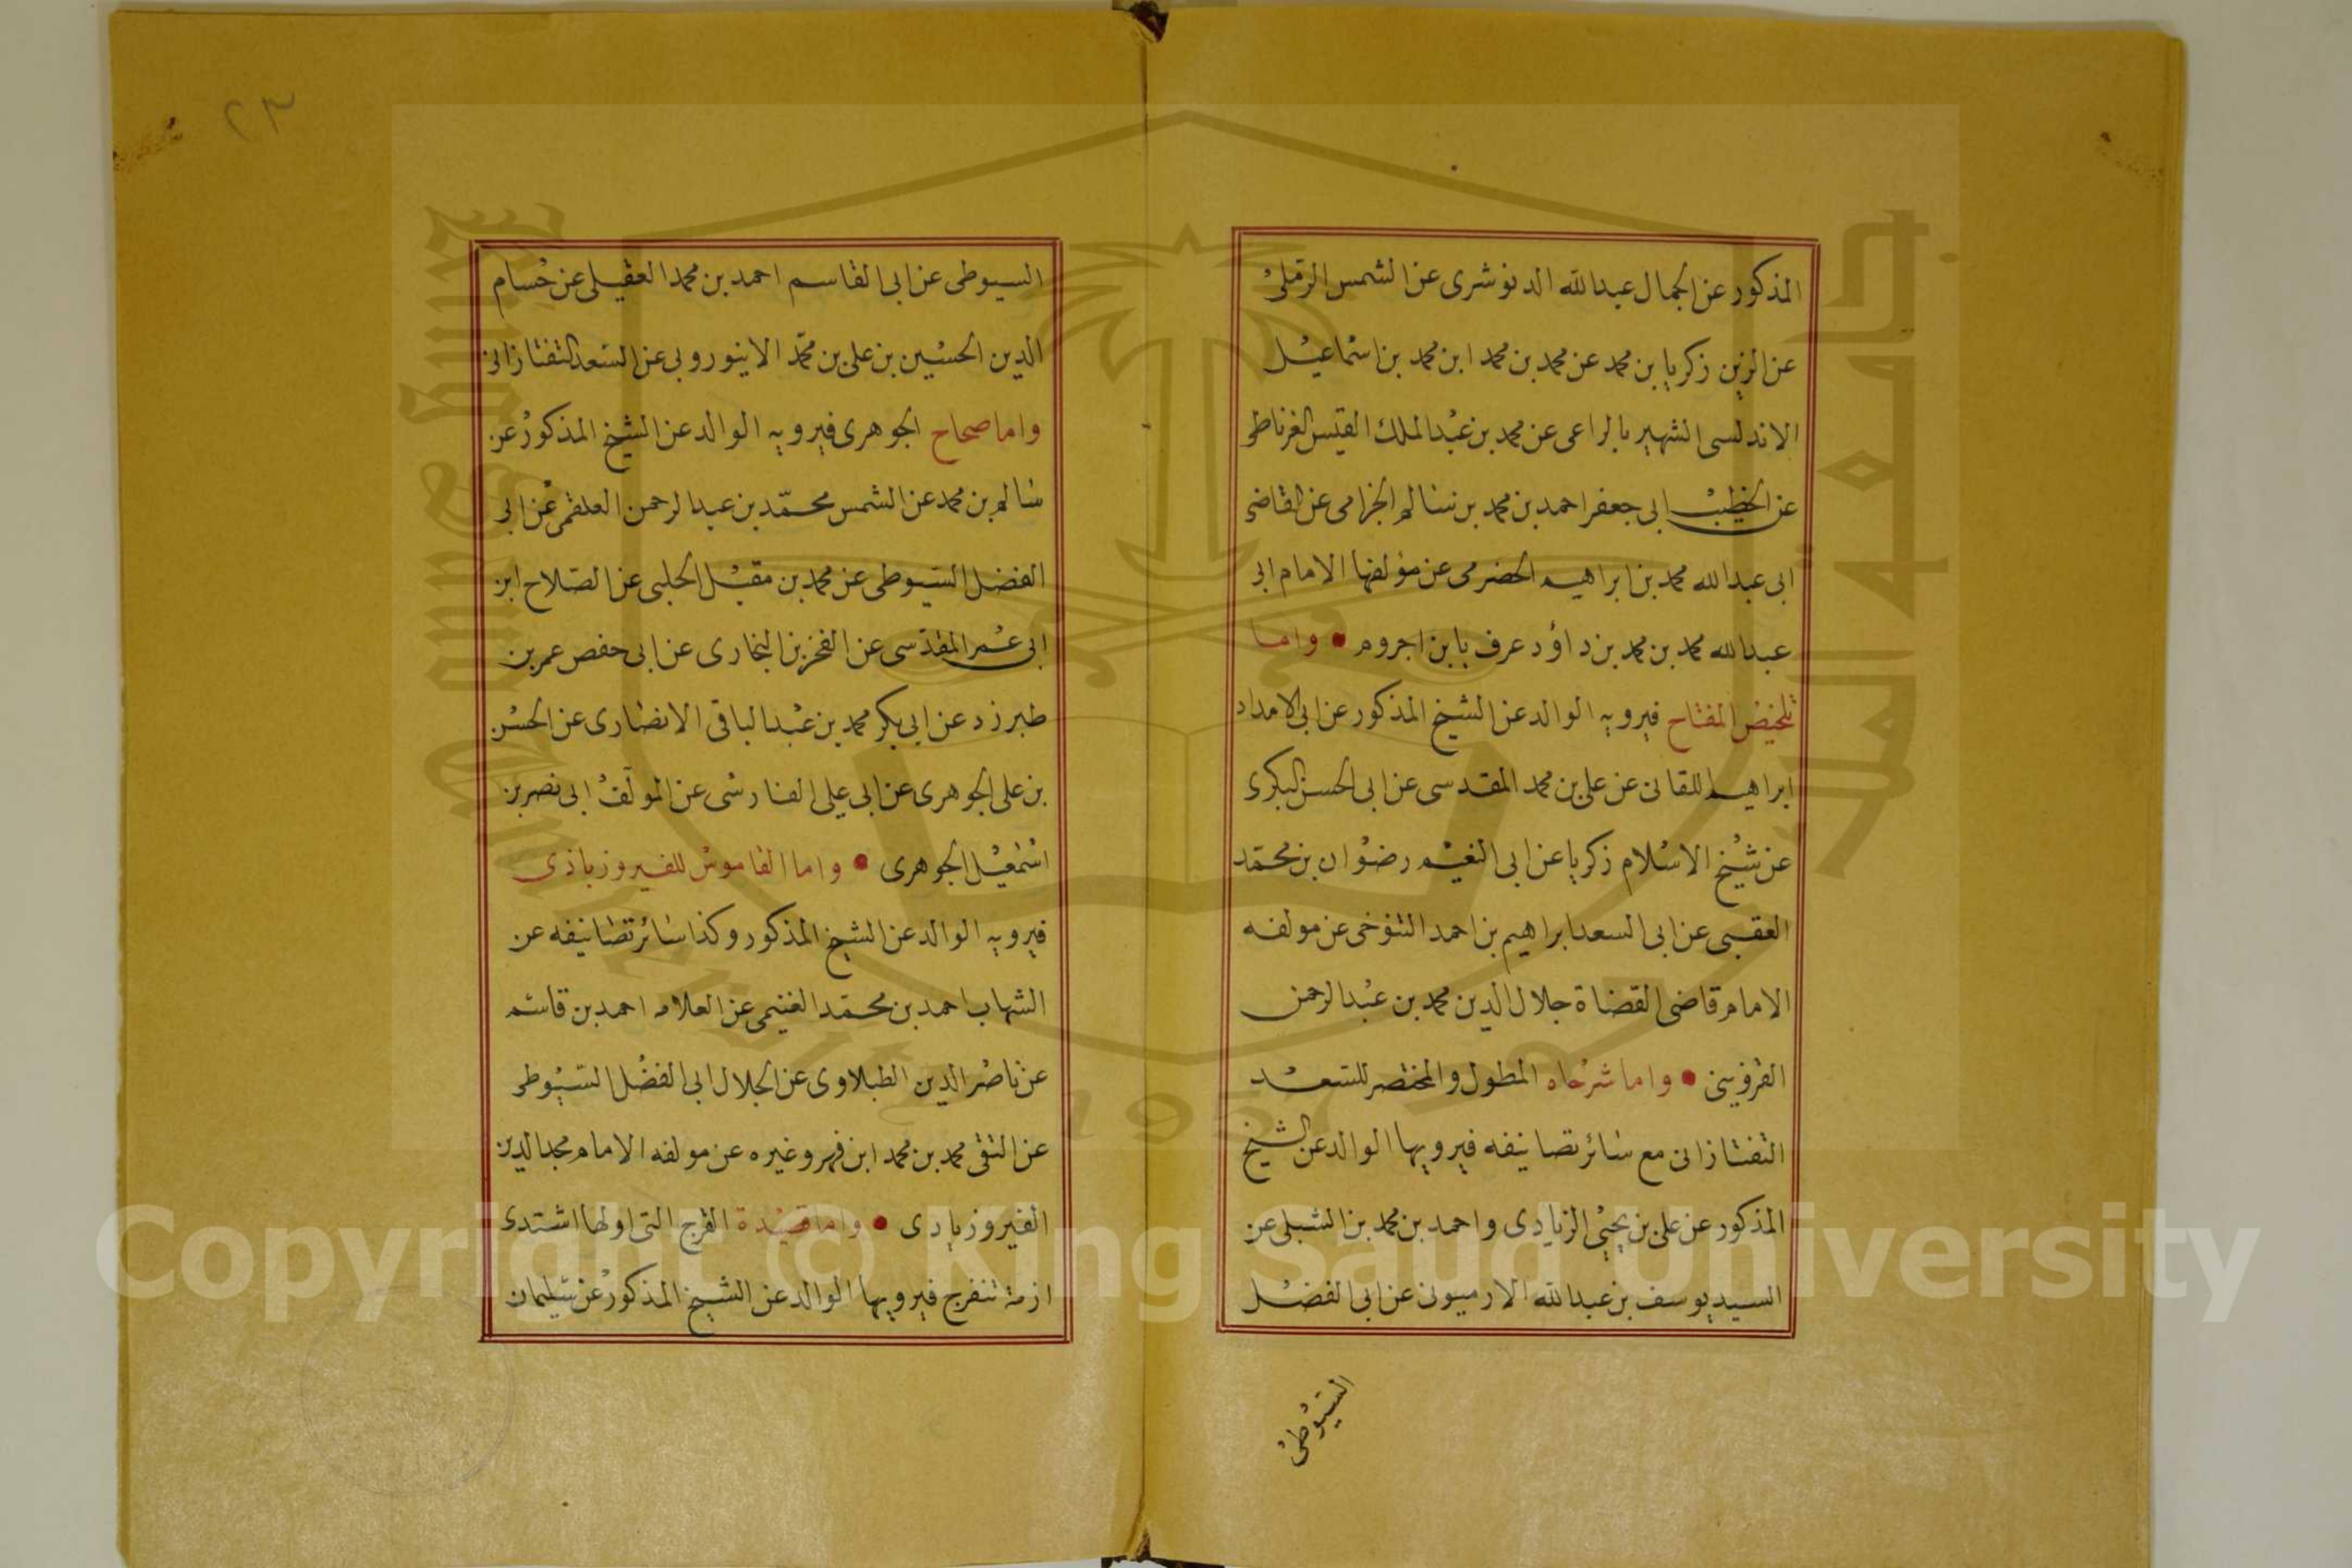 المذكور عن الجمال عبدالله الدنوشرى عن الشمس الرملى
عن الزين زكريا بن محمد عن محمد بن محمد ابن محمد بن اسماعيل
الاندلسى الشهير بالراعى عن محمد بن عبدالملك القيسى الغرناطى
عن الخطيب ابى جعفر احمد بن محمد بن سالم الجزامى عن القاضى
ابى عبدالله محمد بن ابراهيم الحضرمى عن مؤلفها الامام ابى
عبدالله محمد بن محمد بن داؤد عرف بابن اجروم • واما
تلخيص المفتاح فيرويه الوالد عن الشيخ المذكور عن ابى الامداد
ابراهيم اللقانى عن على بن محمد المقدسى عن ابى الحسن البكرى
عن شيخ الاسلام زكريا عن ابى النعيم رضوان بن محمد
العقبى عن ابى السعد ابراهيم بن احمد التنوخى عن مولفه
الامام قاضى القضاة جلال الدين محمد بن عبدالرحمن
القزوينى • واما شرحاه المطول والمختصر للسعد
التفتازانى مع سائر تصانيفه فيرويها الوالد عن الشيخ
المذكور عن على بن يحيى الزيادى واحمد بن محمد بن الشبلى عن
السيد يوسف بن عبدالله الارميونى عن ابى الفضل
السيوطى
٢٣
السيوطى عن ابى القاسم احمد بن محمد العقيلى عن حسام
الدين الحسين بن على بن محمد الابيوروبى عن السعد التفتازانى
واما صحاح الجوهرى فيرويه الوالد عن الشيخ المذكور عن
سالم بن محمد عن الشمس محمد بن عبدالرحمن العلقمى عن ابى
الفضل السيوطى عن محمد بن مقبل الحلبى عن الصلاح ابن
ابى عمر المقدسى عن الفخر بن البخارى عن ابى حفص عمر بن
طبرزد عن ابى بكر محمد بن عبدالباقى الانصارى عن الحسن
بن على الجوهرى عن ابى على الفارسى عن المولف ابى نصر بن
اسمعيل الجوهرى • واما القاموس للفيروزباذى
فيرويه الوالد عن الشيخ المذكور وكذا سائر تصانيفه عن
الشهاب احمد بن محمد الغنيمى عن العلامه احمد بن قاسم
عن ناصر الدين الطبلاوى عن الجلال ابى الفضل السيوطى
عن التقى محمد بن محمد ابن فهر وغيره عن مولفه الامام مجدالدين
الفيروزبادى • واما قصيدة الفرج التى اولها اشتدى
ازمة تنفرج فيرويها الوالد عن الشيخ المذكور عن سليمان
Copyright © King Saud University